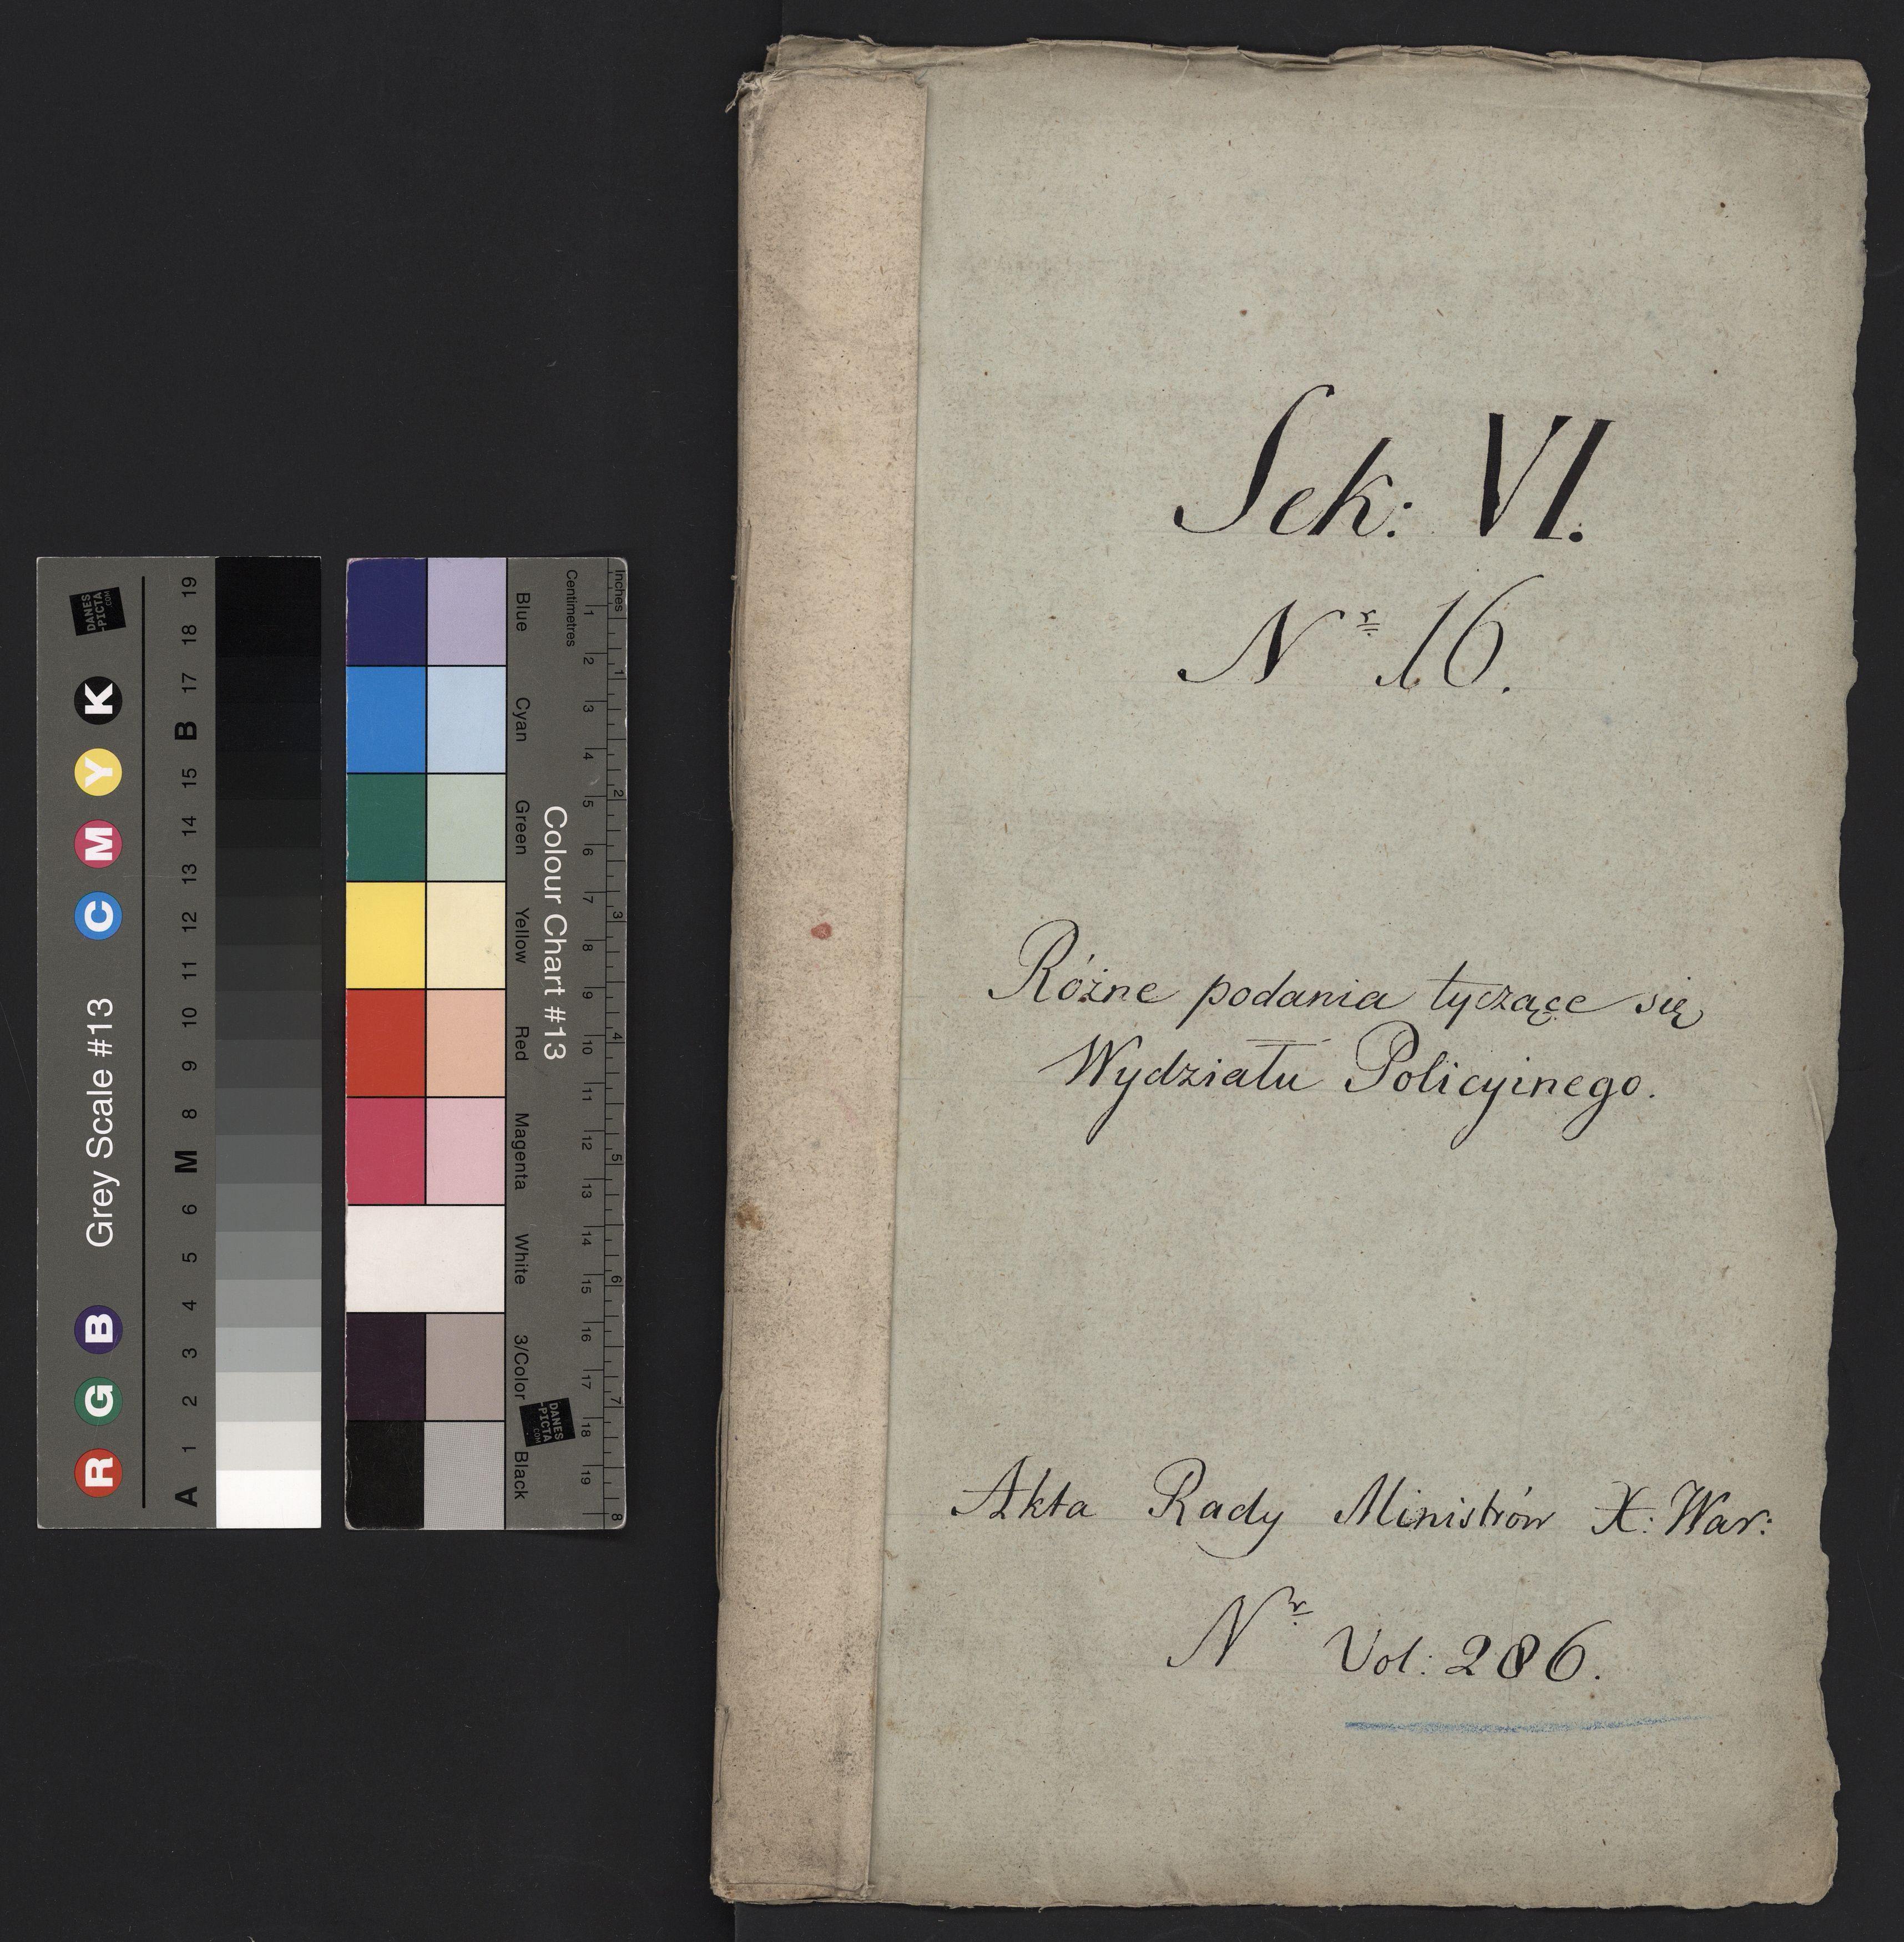 Sek: VI.
Nr 16.
Różne podania tyczące się
Wydziału Policyinego.
Akta Rady Ministrów X: War:
Nr Vol: 286.
R G B Grey Scale #13 C M Y K
A 1 2 3 4 5 6 M 8 9 10 11 12 13 14 15 B 17 18 19
DANES
-PICTA
.COM
Colour Chart #13
Blue Cyan Green Yellow Red Magenta White 3/Color Black
Centimetres 1 2 3 4 5 6 7 8 9 10 11 12 13 14 15 16 17 18 19
Inches 1 2 3 4 5 6 7 8
DANES
-PICTA
.COM